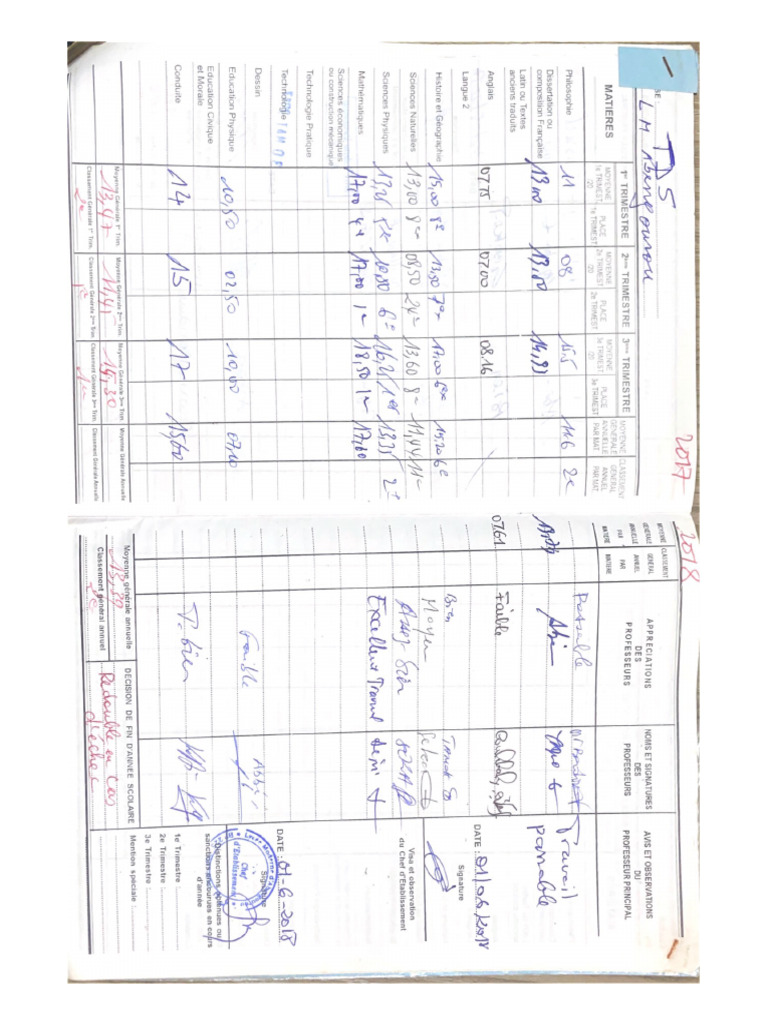 TD5
2017
2018
MATIERES
1er TRIMESTRE
2me TRIMESTRE
3me TRIMESTRE
MOYENNE GENERALE ANNUELLE PAR MAT
CLASSEMENT GENERAL ANNUEL PAR MAT.
MOYENNE 1e TRIMEST. /20
PLACE 1e TRIMEST.
MOYENNE 2e TRIMEST /20
PLACE 2e TRIMEST
MOYENNE 3e TRIMEST /20
PLACE 3e TRIMEST
Philosophie 11 08 15.5 11.6 2e
Dissertation ou composition Française 13,00 13,00 14,99
Latin ou Textes anciens traduits
Anglais 07.75 07.00 08.16
Langue 2
Histoire et Géographie 15,00 8e 13,50 7e 17,00 15,20 6e
Sciences Naturelles 13,00 8e 08,50 24e 13,60 8e 11,44 11e
Sciences Physiques 13,25 10,50 6e 16,25 1er 13,35 2e
Mathématiques 17,00 4e 17,00 1er 18,50 1er 17,60
Sciences économiques ou construction mécanique
Technologie Pratique
Technologie
Dessin
Education Physique 10,50 02,50 10,00 07,10
Education Civique et Morale
Conduite 14 15 17 15,60
Moyenne Générale 1er Trim. 13,47
Classement Générale 1er Trim. 2e
Moyenne Générale 2me Trim. 11,41
Classement Générale 2me Trim. 1er
Moyenne Générale 3me Trim. 15,30
Classement Générale 3me Trim. 1er
Moyenne Générale Annuelle
Classement Générale Annuel
MOYENNE GENERALE ANNUELLE PAR MATIERE
CLASSEMENT GENERAL ANNUEL PAR MATIERE
APPRECIATIONS DES PROFESSEURS
NOMS ET SIGNATURES DES PROFESSEURS
AVIS ET OBSERVATIONS DU PROFESSEUR PRINCIPAL
Passable
Travail passable
A.bien
07.61 Faible
DATE : 01/06/2018
Signature
Bien
Moyen
Assez Bien
Excellent Travail
Visa et observation du Chef d'Etablissement
Faible
DATE : 01-6-2018
Signature
T. bien
Distinctions obtenues ou sanctions encourues en cours d'année
1e Trimestre
2e Trimestre
3e Trimestre
Mention spéciale :
Moyenne générale annuelle
Classement général annuel 2e
DECISION DE FIN D'ANNEE SCOLAIRE
Redouble en cas d'échec